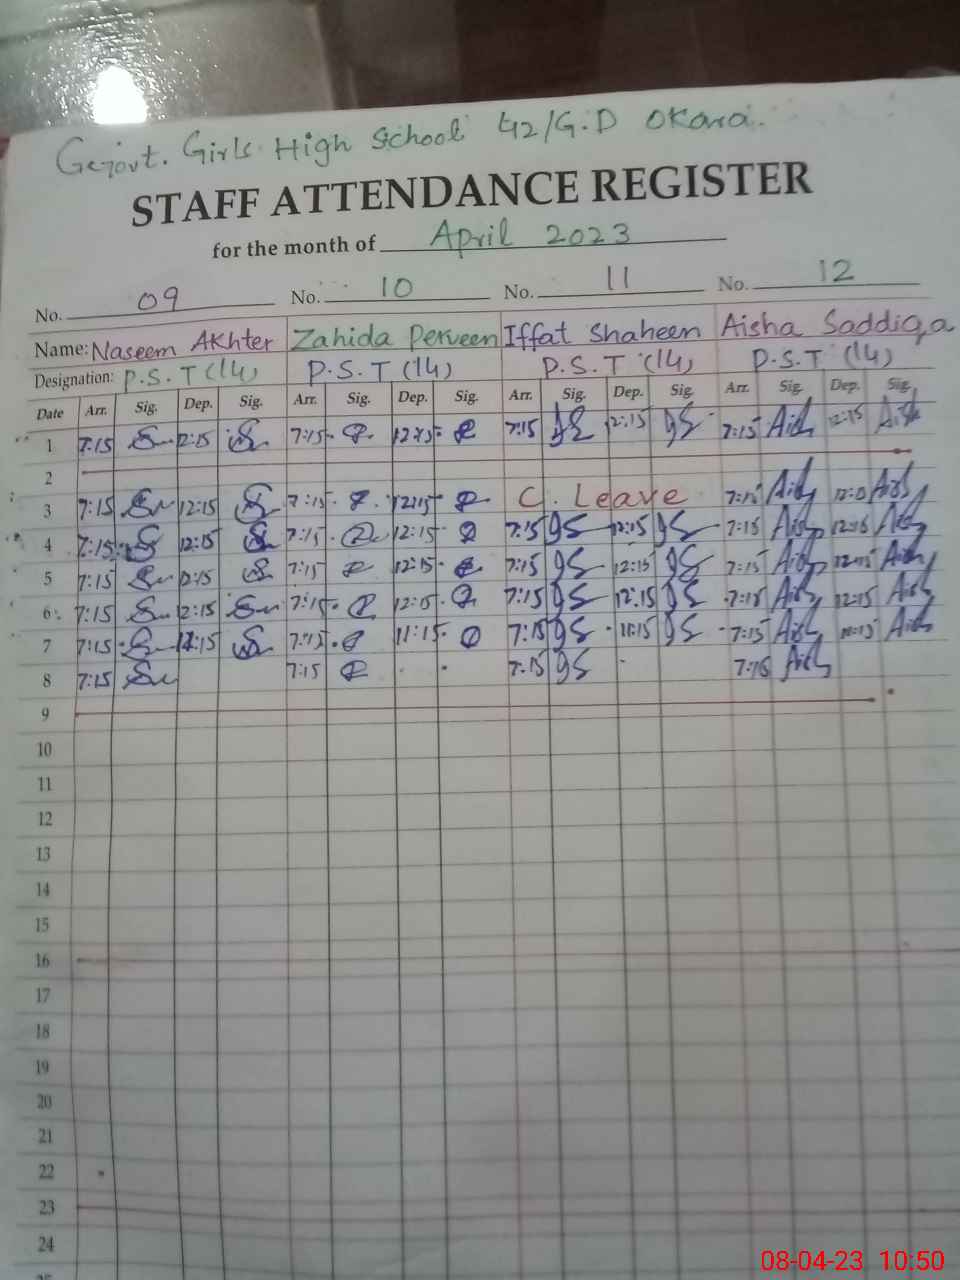 Govt. Girls High School 42/G.D Okara.
STAFF ATTENDANCE REGISTER
for the month of April 2023
No. 09 No. 10 No. 11 No. 12
Name: Naseem Akhter Zahida Perveen Iffat Shaheen Aisha Saddiqa
Designation: P.S.T (14) P.S.T (14) P.S.T (14) P.S.T (14)
Date Arr. Sig. Dep. Sig. Arr. Sig. Dep. Sig. Arr. Sig. Dep. Sig. Arr. Sig. Dep. Sig.
1 7:15 12:15 7:15 12:15 7:15 12:15 7:15 12:15
2
3 7:15 12:15 7:15 12:15 C. Leave 7:15
4 7:15 12:15 7:15 12:15 7:15 12:15 7:15
5 7:15 12:15 7:15 12:15 7:15 12:15 7:15 12:15
6 7:15 12:15 7:15 12:15 7:15 12:15 7:15 12:15
7 7:15 7:15 11:15 7:15 11:15 7:15 11:15
8 7:15 7:15 7:15 7:15
9
10
11
12
13
14
15
16
17
18
19
20
21
22
23
24
08-04-23 10:50